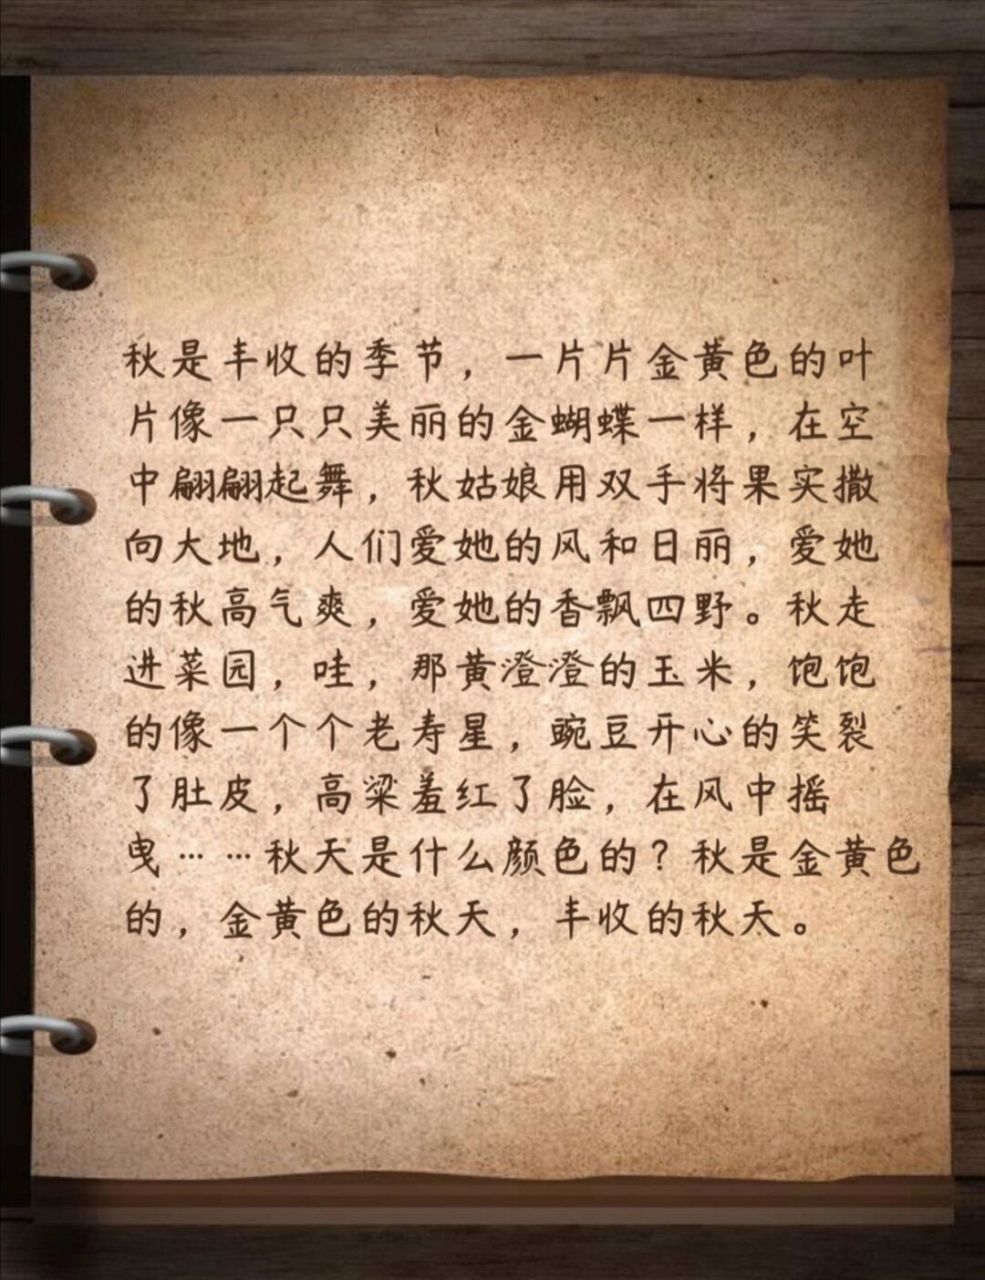 秋是丰收的季节，一片片金黄色的叶
片像一只只美丽的金蝴蝶一样，在空
中翩翩起舞，秋姑娘用双手将果实撒
向大地，人们爱她的风和日丽，爱她
的秋高气爽，爱她的香飘四野。秋走
进菜园，哇，那黄澄澄的玉米，饱饱
的像一个个老寿星，豌豆开心的笑裂
了肚皮，高粱羞红了脸，在风中摇
曳……秋天是什么颜色的？秋是金黄色
的，金黄色的秋天，丰收的秋天。